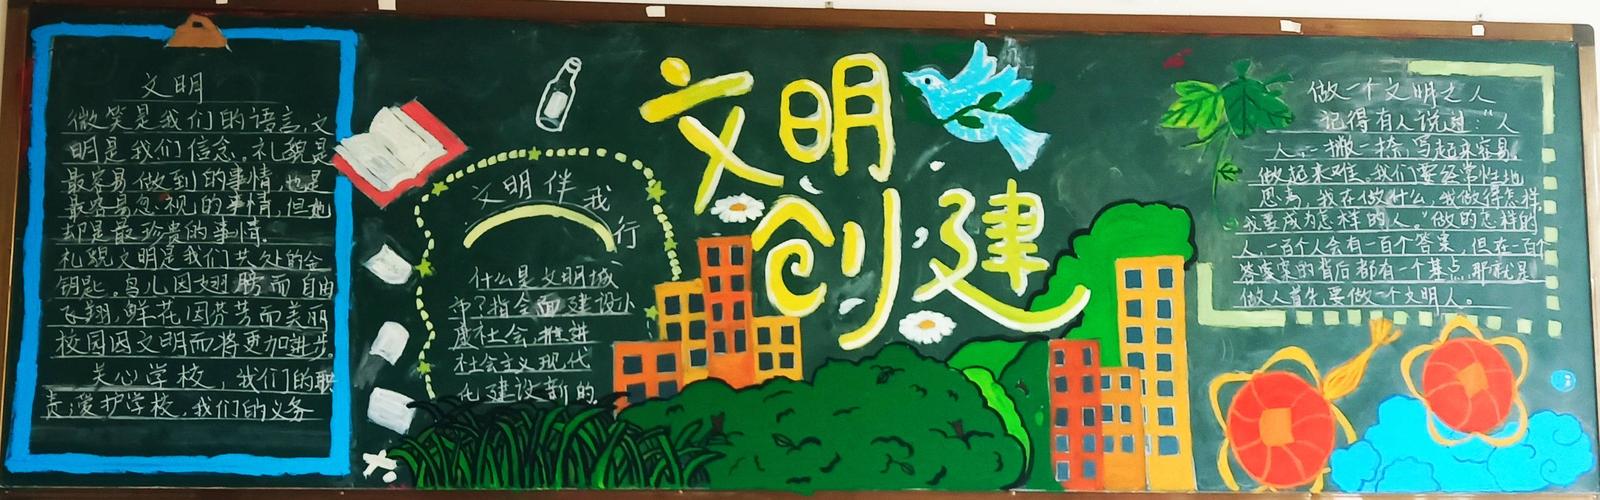 文明
微笑是我们的语言,文
明是我们信念。礼貌是
最容易做到的事情,也是
最容易忽视的事情,但她
却是最珍贵的事情.
礼貌文明是我们共处的金
钥匙。鸟儿因翅膀而自由
飞翔,鲜花因芬芳而美丽
校园因文明而将更加进步。
关心学校,我们的职
责;爱护学校,我们的义务
文明伴我行
什么是文明城
市?指全面建设小
康社会,推进
社会主义现代
化建设新的.
文明
创建
做一个文明之人
记得有人说过:“人
人,一撇一捺,写起来容易,
做起来难。我们要经常性地
思考,我在做什么,我做得怎样,
我要成为怎样的人。”做的怎样的
人,一百个人会有一百个答案,但在一百个
答案的背后都有一个基点,那就是
做人首先要做一个文明人。